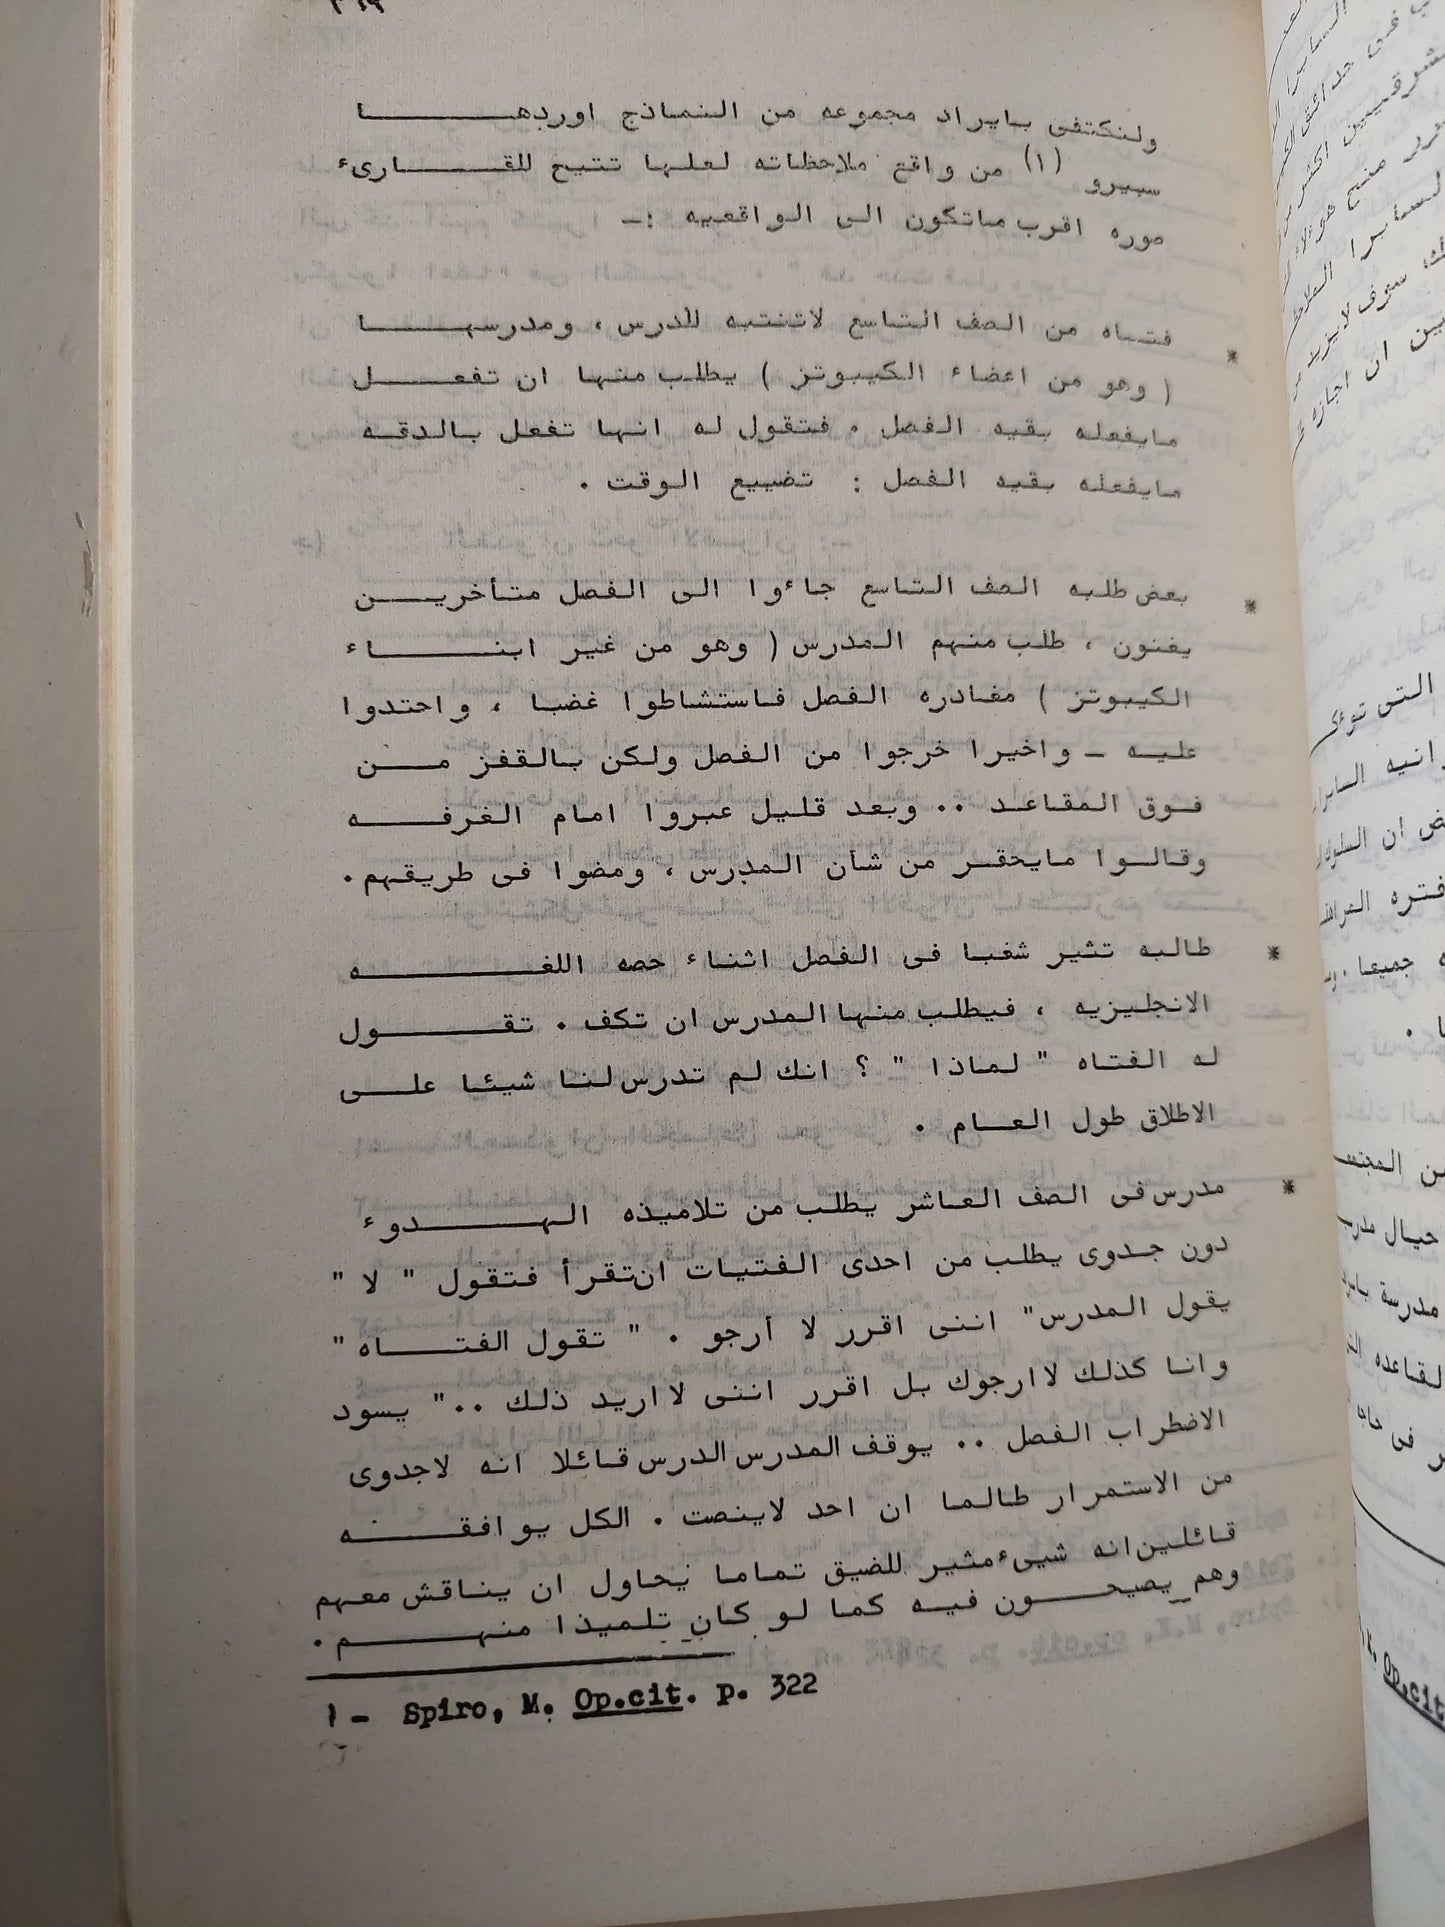 ولنكتفى بايراد مجموعه من النماذج اوردها
سبيرو (١) من واقع ملاحظاته لعلها تتيح للقارىء
صوره اقرب ماتكون الى الواقعيه :ـ
* فتاه من الصف التاسع لاتنتبه للدرس ، ومدرسها
( وهو من اعضاء الكيبوتز ) يطلب منها ان تفعل
مايفعله بقيه الفصل . فتقول له انها تفعل بالدقه
مايفعله بقيه الفصل : تضييع الوقت .
* بعض طلبه الصف التاسع جاءوا الى الفصل متأخرين
يغنون ، طلب منهم المدرس ( وهو من غير ابناء
الكيبوتز ) مغادره الفصل فاستشاطوا غضبا ، واحتدوا
عليه ـ واخيرا خرجوا من الفصل ولكن بالقفز من
فوق المقاعد .. وبعد قليل عبروا امام الغرفه
وقالوا مايحقر من شأن المدرس ، ومضوا فى طريقهم .
* طالبه تثير شغبا فى الفصل اثناء حصه اللغه
الانجليزيه ، فيطلب منها المدرس ان تكف . تقول
له الفتاه " لماذا " ؟ انك لم تدرس لنا شيئا على
الاطلاق طول العام .
* مدرس فى الصف العاشر يطلب من تلاميذه الهدوء
دون جدوى يطلب من احدى الفتيات ان تقرأ فتقول " لا "
يقول المدرس" اننى اقرر لا أرجو . " تقول الفتاه "
وانا كذلك لا ارجوك بل اقرر اننى لا اريد ذلك .." يسود
الاضطراب الفصل .. يوقف المدرس الدرس قائلا انه لاجدوى
من الاستمرار طالما ان احد لاينصت . الكل يوافقه
قائلين انه شيىء مثير للضيق تماما يحاول ان يناقش معهم
وهم يصيحون فيه كما لو كان تلميذا منهم .
١ - Spiro, M. Op.cit. p. 322